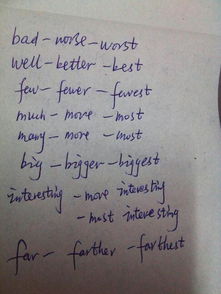 bad - worse - worst
well - better - best
few - fewer - fewest
much - more - most
many - more - most
big - bigger - biggest
interesting - more interesting
- most interesting
far - farther - farthest